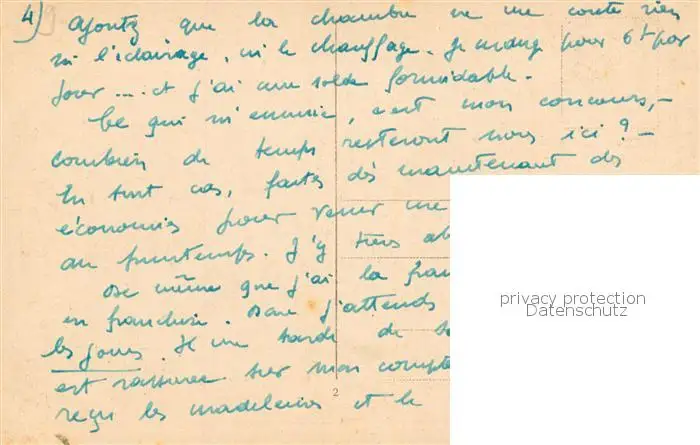 4) Ajoutez que la chambre ne me coute rien
ni l'éclairage, ni le chauffage. Je mange pour 6f par
jour .... et j'ai une solde formidable.
Ce qui m'ennuie, c'est mon concours,-
combien de temps resteront nous ici ? -
En tout cas, faites dès maintenant des
économies pour venir me
au printemps. J'y tiens
même que j'ai la
en franchise. j'attends
les jours. Il me tarde de
est rassurée sur mon compte
reçu les madeleines et le
2
privacy protection
Datenschutz